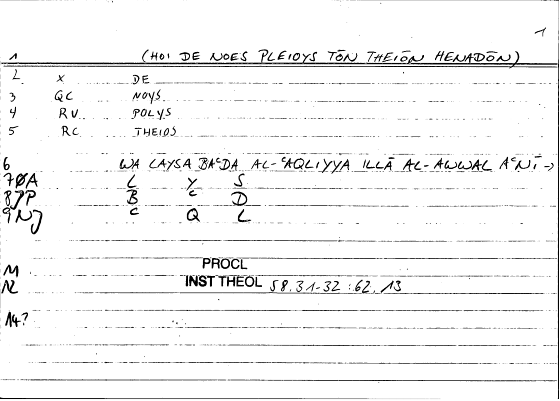 1
1 (HOI DE NOES PLEIOYS TŌN THEIŌN HENADŌN)
2 X DE
3 QC NOYS
4 RU POLYS
5 RC THEIOS
6 WA LAYSA BAʿDA AL-ʿAQLIYYA ILLĀ AL-AWWAL AʿNĪ →
7ØA L Y S
8JP B ʿ D
9NJ ʿ Q L
M PROCL
N INST THEOL 58.31-32 : 62.13
14?